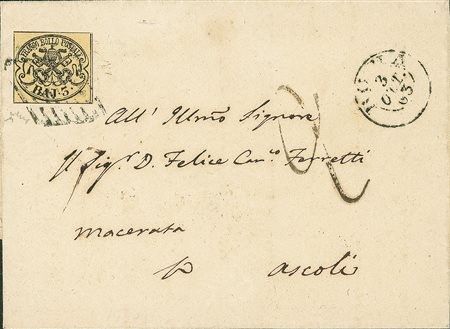 FRANCO BOLLO POSTALE
BAJ. 5.
ROMA
3
63
All' Illmo Signore
Il Sigr. D. Felice Can.co Ferretti
macerata
p ascoli